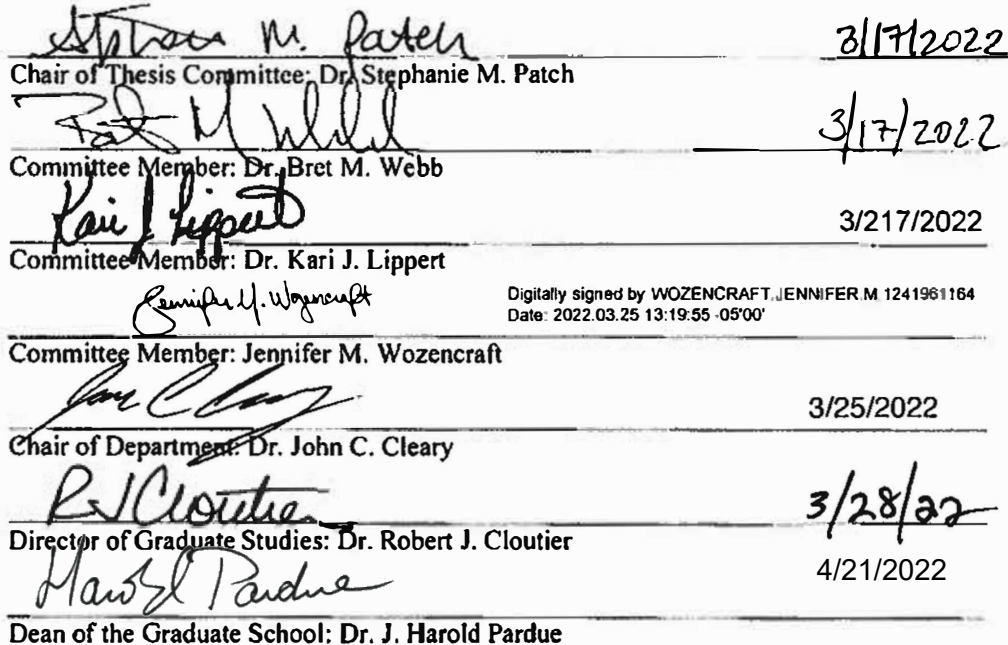 Stephanie M. Patch 3/17/2022
Chair of Thesis Committee: Dr. Stephanie M. Patch
3/17/2022
Committee Member: Dr. Bret M. Webb
Kari J Lippert 3/217/2022
Committee Member: Dr. Kari J. Lippert
Jennifer M. Wozencraft Digitally signed by WOZENCRAFT.JENNIFER.M.1241961164
Date: 2022.03.25 13:19:55 -05'00'
Committee Member: Jennifer M. Wozencraft
3/25/2022
Chair of Department: Dr. John C. Cleary
RJ Cloutier 3/28/22
Director of Graduate Studies: Dr. Robert J. Cloutier
Harold Pardue 4/21/2022
Dean of the Graduate School: Dr. J. Harold Pardue